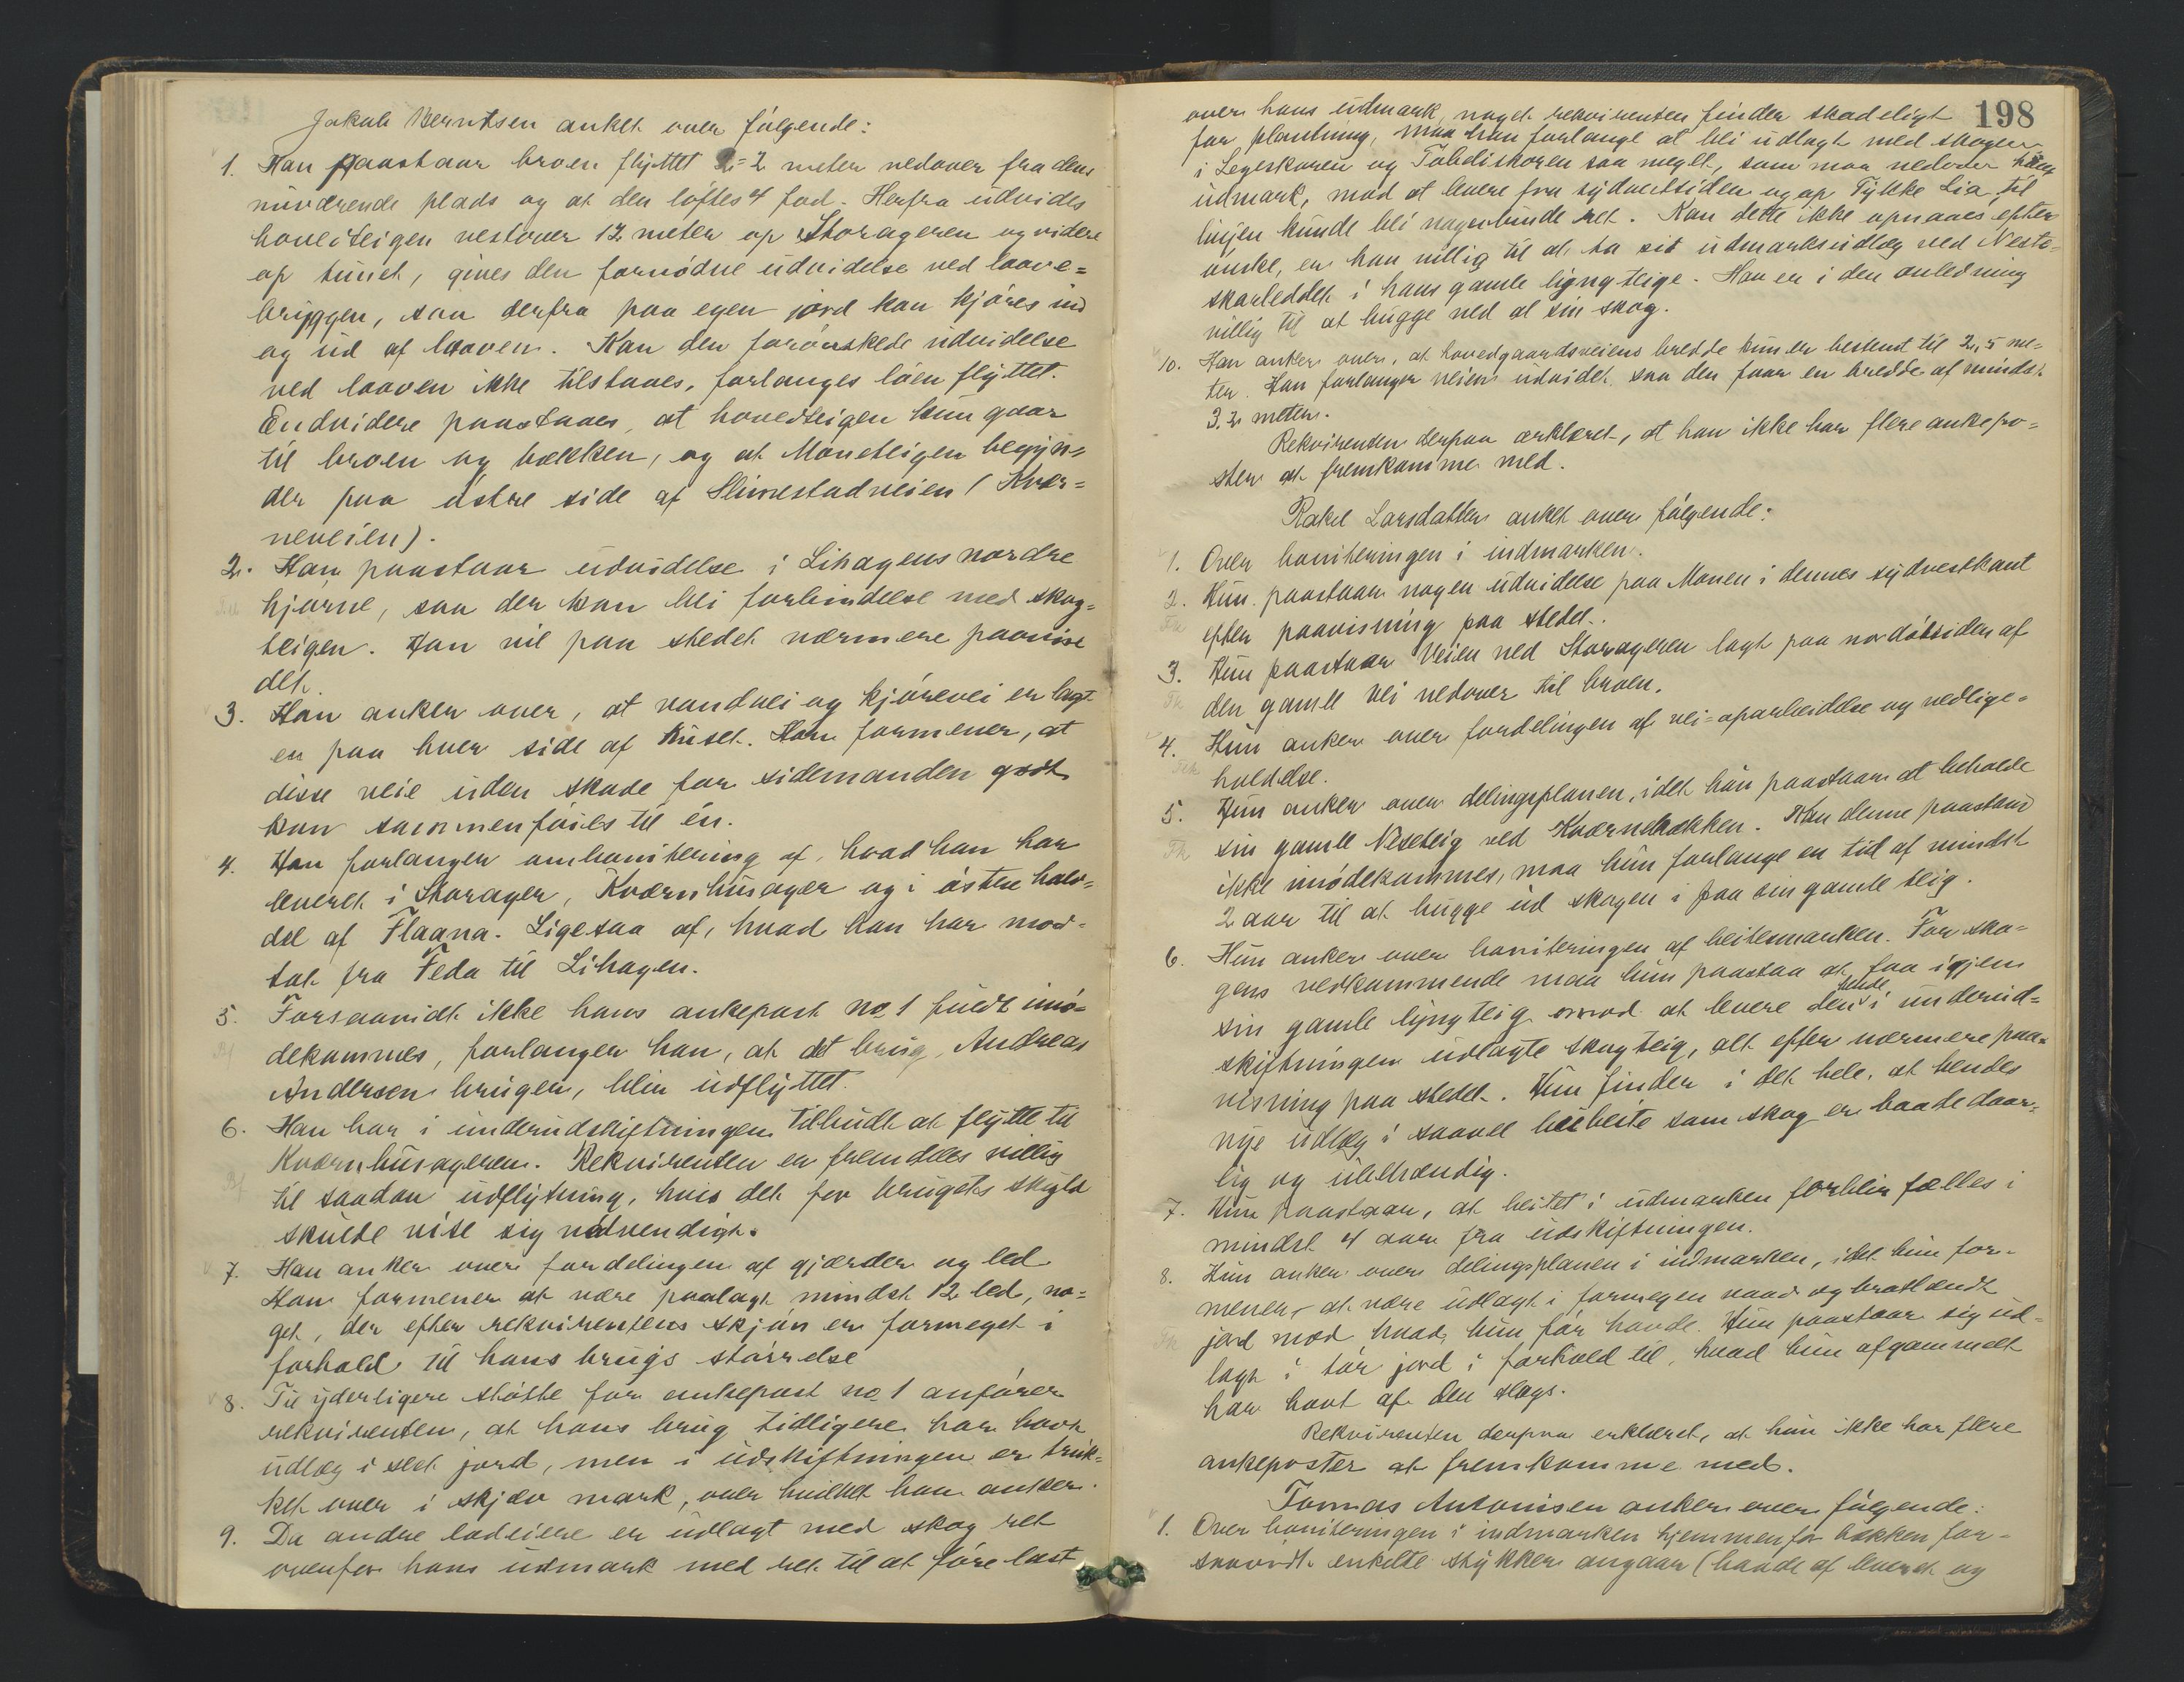 Jakob Berntsen anket over følgende:
1. Han paastaar broen flyttet 2 meter nedover fra dens
nuværende plads og at den løftes 4 fod. Herfra udvides
hoveiteigen vestover 12 meter op Storageren og videre
op tunet, gives den fornødne udvidelse ved laave=
bryggen, saa derfra paa egen jord kan kjøres ind
og ud af laaven. Kan den forønskede udvidelse
ved laaven ikke tilstaaes, forlanges løen flyttet.
Endvidere paastaaes, at hovedteigen kun gaar
til broen og bækken, og at Moneteigen begyn=
der paa østre side af Slimestadveien (Kvær=
neveien).
2. Han paastaar udvidelse i Lihagens nordre
hjørne, saa der kan bli forbindelse med skog=
teigen. Han vil paa stedet nærmere paavise
det.
3. Han anker over, at vandvei og kjørevei er lagt
en paa hver side af huset. Han formener, at
disse veie uden skade for sidemanden godt
kan sammenføies til én.
4. Han forlanger ombonitering af, hvad han har
leveret i Storager, Kværnhusager og i østre halv=
del af Flaana. Ligesaa af, hvad han har mod=
tat fra Feda til Lihagen.
5. Forsaavidt ikke hans ankepost no 1 fuldt imø=
dekommes, forlanger han, at det brug, Andreas
Andersen bruger, blir udflyttet.
6. Han har i underudskiftningen tilbudt at flytte til
Kværnhusageren. Rekvirenten er fremdeles villig
til saadan udflytning, hvis det for brugets skyld
skulde vise sig nødvendigt.
7. Han anker over fordelingen af gjærder og led.
Han formener at være paalagt mindst 12 led, no=
get, der efter rekvirentens skjøn er formeget i
forhold til hans brugs størrelse
8. Til yderligere støtte for ankepost no 1 anfører
rekvirenten, at hans brug tidligere har havt
udlæg i slet jord, men i udskiftningen er truk=
ket over i skjæv mark, over hvilket han anker.
9. Da andre lodeiere er udlagt med skog ret
ovenfor hans udmark med ret til at føre last
198
over hans udmark, noget rekvirenten finder skadeligt
for plantning, maa han forlange at bli udlagt med skogen
i Legeskaren og Tobdiskoren saa meget, som maa nedover hans
udmark, mod at levere fra sydvestsiden og op Tykke Lia til
linjen kunde bli nogenlunde ret. Kan dette ikke opnaaes efter
ønske, er han villig til at ta sit udmarksudlæg ved Neste=
skarleddet i hans gamle lyngteige. Han er i den anledning
villig til at hugge ned al sin skog.
10. Han anker over, at hovedgaardsveiens bredde kun er bestemt til 2,5 me=
ter. Han forlanger veien udvidet saa den faar en bredde af mindst
3,2 meter.
Rekvirenten derpaa erklæret, at han ikke har flere ankepo=
ster at fremkomme med.
Rakel Larsdatter anket over følgende:
1. Over boniteringen i indmarken.
2. Hun paastaar nogen udvidelse paa Monen i dennes sydvestkant
efter paavisning paa stedet.
3. Hun paastaar veien ved Storageren lagt paa nordøstsiden af
den gamle vei nedover til broen.
4. Hun anker over fordelingen af vei=oparbeidelse og vedlige=
holdelse.
5. Hun anker over delingsplanen, idet hun paastaar at beholde
sin gamle Neseteig ved Kværnebækken. Kan denne paastand
ikke imødekommes, maa hun forlange en tid af mindst
2 aar til at hugge ud skogen i paa sin gamle teig.
6. Hun anker over boniteringen af beitesmarken. For sko=
gens vedkommende maa hun paastaa at faa igjen
sin gamle lyngteig mod at levere den hende i underud=
skiftningen udlagte skogteig, alt efter nærmere paa=
visning paa stedet. Hun finder i det hele, at hendes
nye udlæg i saavel beite som skog er baade daar=
lig og ubehændig.
7. Hun paastaar, at beitet i udmarken forblir fælles i
mindst 4 aar fra udskiftningen.
8. Hun anker over delingsplanen i indmarken, idet hun for=
mener at være udlagt i formegen vaad og bratlændt
jord mod hvad hun før havde. Hun paastaar sig ud=
lagt i tør jord i forhold til, hvad hun af gammelt
har havt af den slags.
Rekvirenten derpaa erklæret, at hun ikke har flere
ankeposter at fremkomme med.
Tomas Antonisen anker over følgende:
1. Over boniteringen i indmarken hjemmenfor bækken for=
saavidt enkelte stykker angaar (baade af leveret og